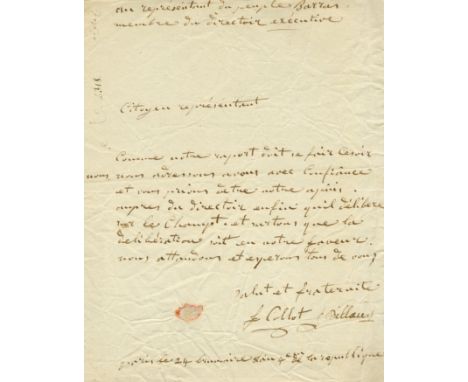 au representant du peuple Barras
membre du directoir exécutive
Citoyen représentant
Comme notre raport doit se fair lesoir
nous nous adressons avous avec Confiance
et vous prions detre notre apuis
aupres du directoir enfin quil délibère
sur le Champt. et surtous que la
delibération soit en notre faveur.
nous attandons et esperons tous de vous
Salut et fraternite
Collot Billaud
paris le 24 brumaire 4me de la republique